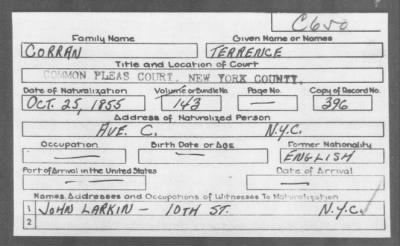 C650
Family Name Given Name or Names
CORRAN TERRENCE
Title and Location of Court
COMMON PLEAS COURT. NEW YORK COUNTY.
Date of Naturalization Volume or Bundle No. Page No. Copy of Record No.
OCT. 25, 1855 143 — 396
Address of Naturalized Person
AVE. C. N.Y.C.
Occupation Birth Date or Age Former Nationality
— — ENGLISH
Port of Arrival in the United States Date of Arrival
— —
Names, Addresses and Occupations of Witnesses To Naturalization
1 JOHN LARKIN — 10TH ST. N.Y.C.
2